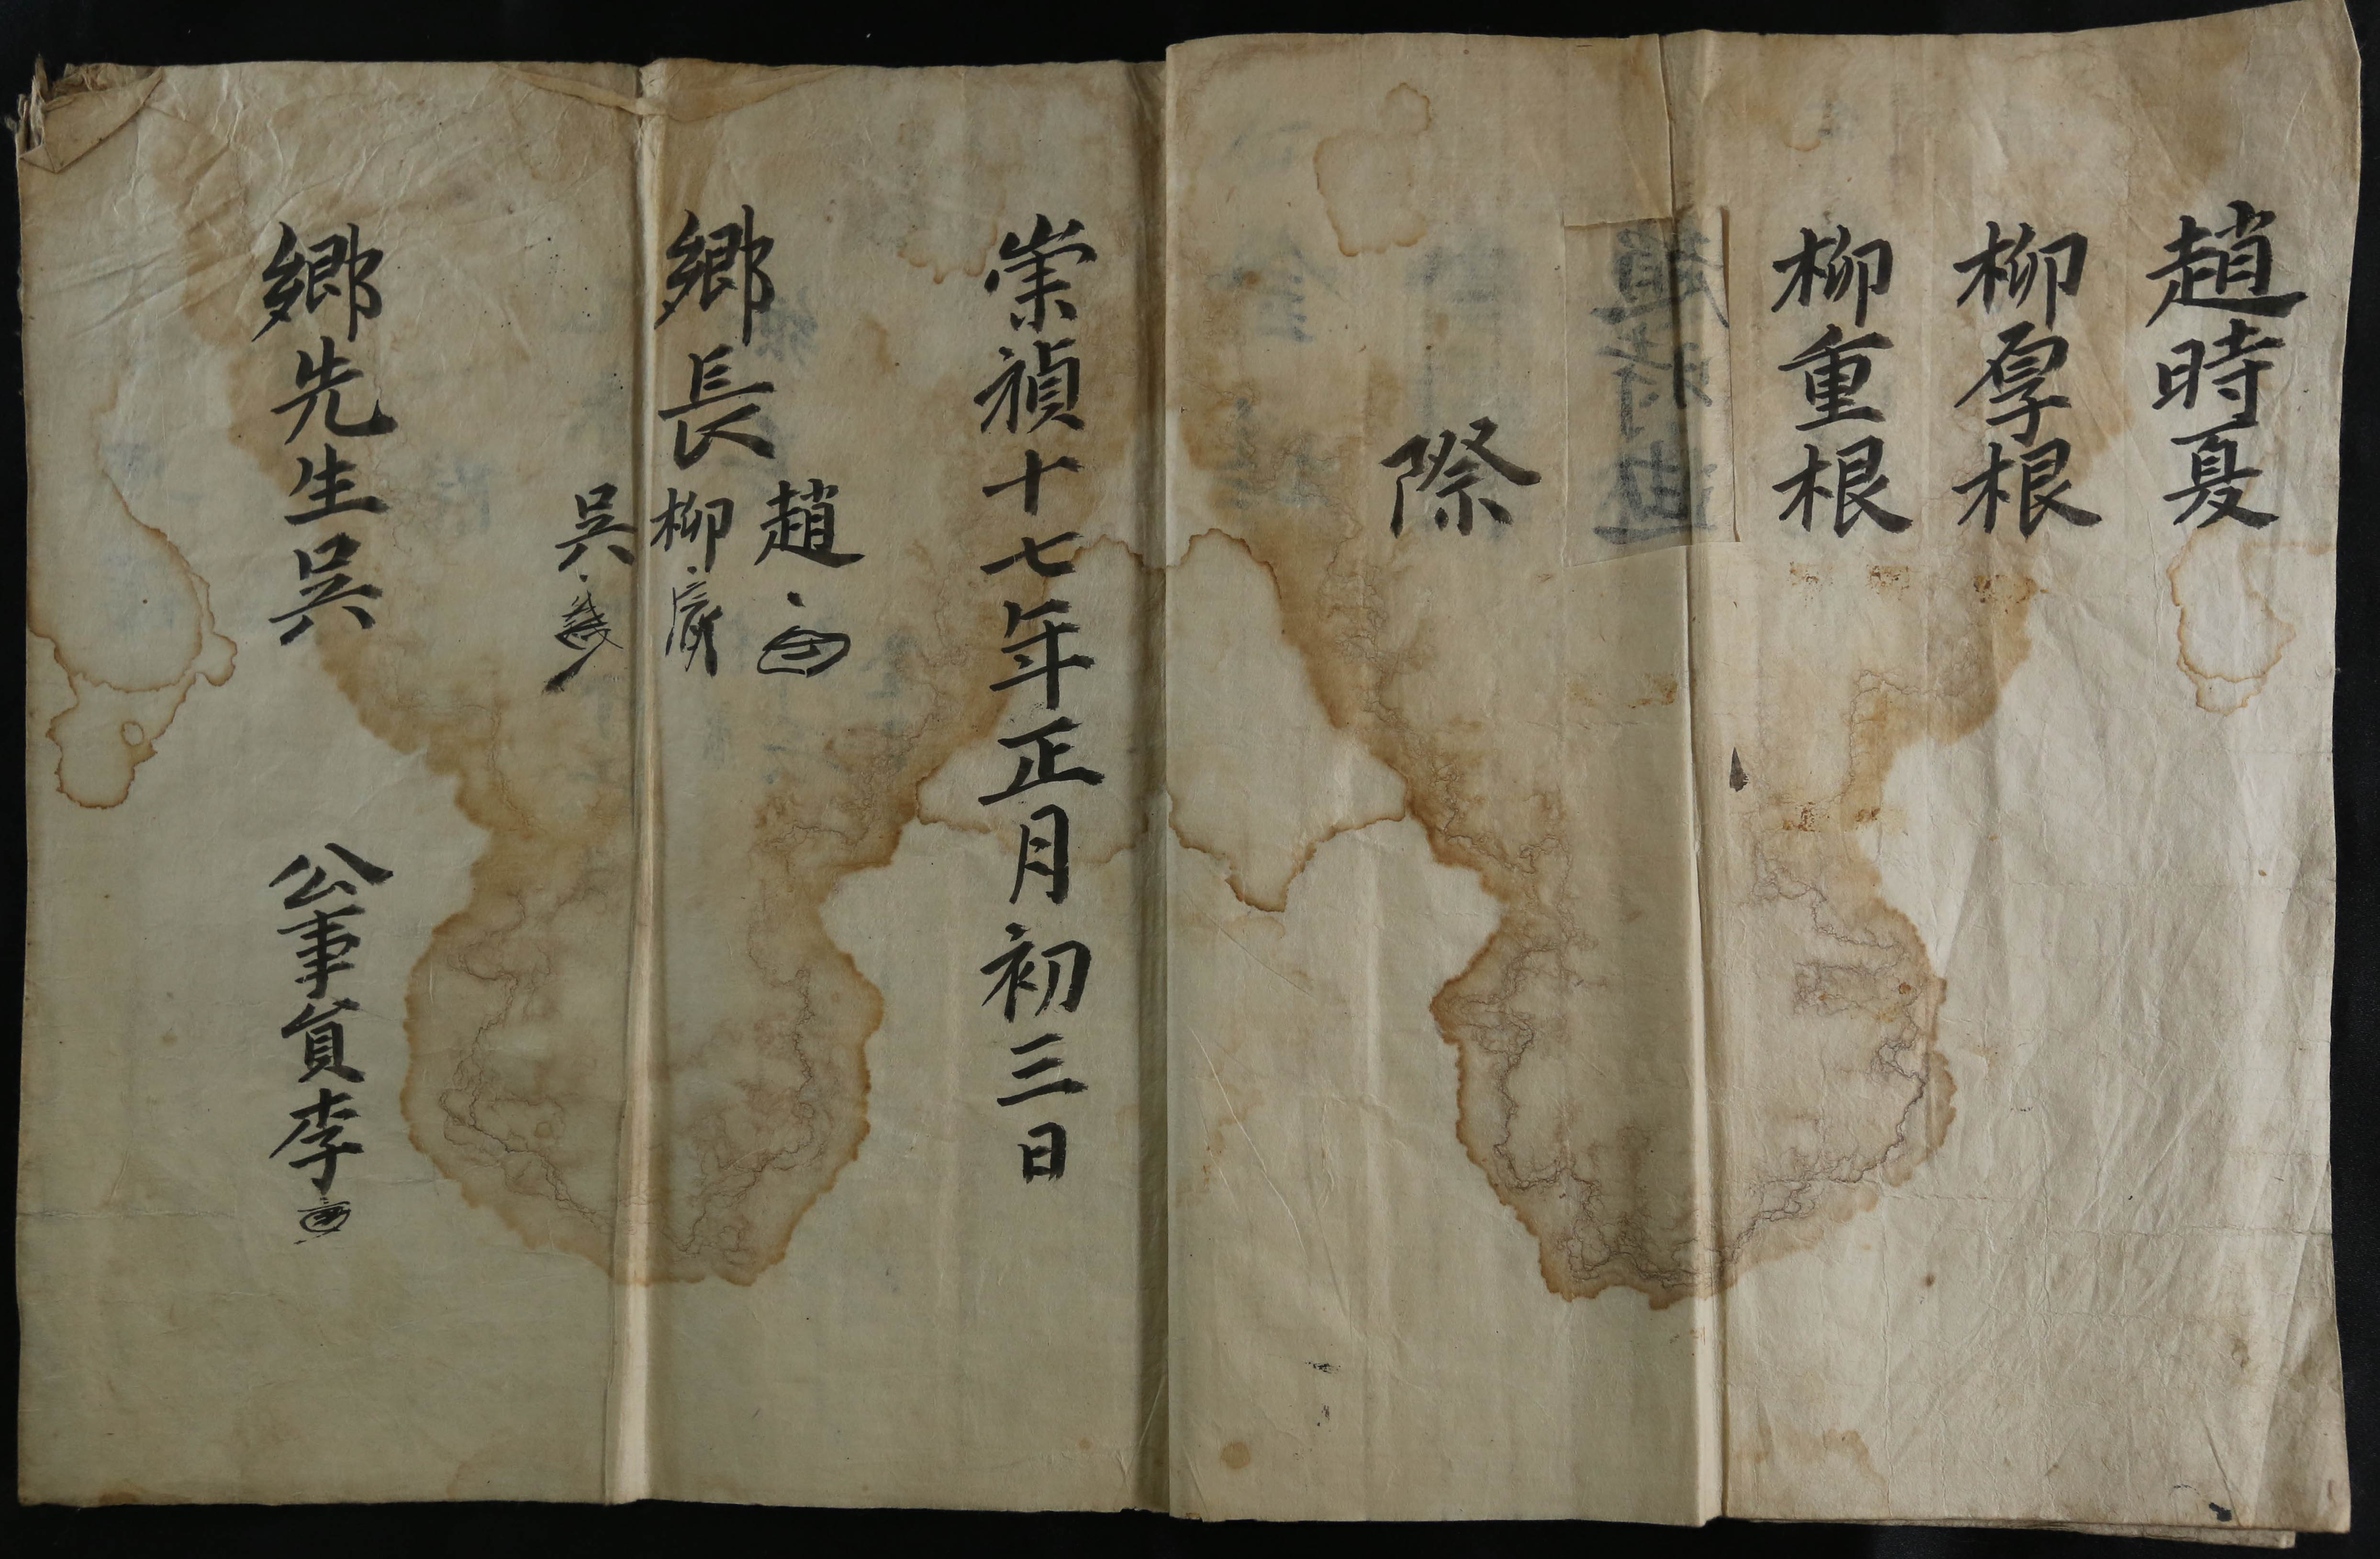 趙時夏
柳厚根
柳重根
際
崇禎十七年正月初三日
鄕長
趙
柳
吳
鄕先生吳
公事員李